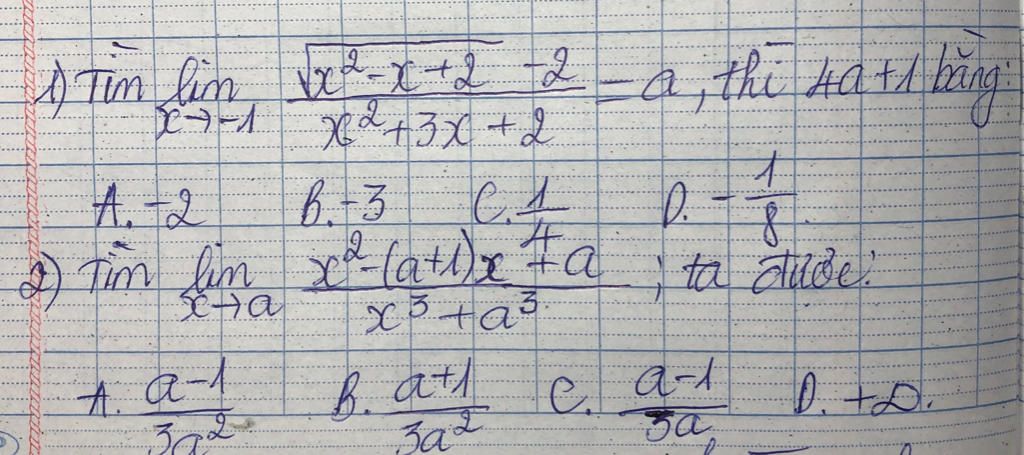 1) Tìm lim x→-1 (√(x²-x+2) -2)/(x²+3x+2) = a, thì 4a+1 bằng:
A. -2 B. -3 C. 1/4 D. -1/8.
2) Tìm lim x→a (x²-(a+1)x+a)/(x³+a³); ta được:
A. (a-1)/(3a²) B. (a+1)/(3a²) C. (a-1)/(3a) D. +∞.